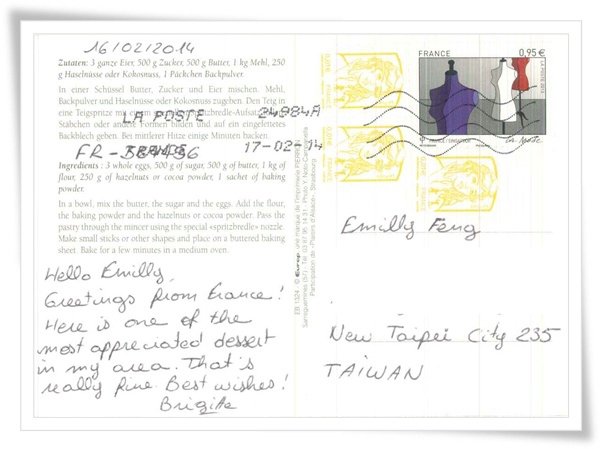 16/02/2014
Zutaten: 3 ganze Eier, 500 g Zucker, 500 g Butter, 1 kg Mehl, 250
g Haselnüsse oder Kokosnuss, 1 Päckchen Backpulver.
In einer Schüssel Butter, Zucker und Eier mischen. Mehl,
Backpulver und Haselnüsse oder Kokosnuss zugeben. Den Teig in
eine Teigspritze mit einem
Stäbchen oder andere Formen bilden und auf ein eingefettetes
Backblech geben. Bei mittlerer Hitze einige Minuten backen
LA POSTE 24984A
FRANCE 17-02-14
FR-384496
Ingredients : 3 whole eggs, 500 g of sugar, 500 g of butter, 1 kg of
flour, 250 g of hazelnuts or cocoa powder, 1 sachet of baking
powder.
In a bowl, mix the butter, the sugar and the eggs. Add the flour,
the baking powder and the hazelnuts or cocoa powder. Pass the
pastry through the mincer using the special «spritzbredle» nozzle.
Make small sticks or other shapes and place on a buttered baking
sheet. Bake for a few minutes in a medium oven.
Hello Emilly,
Greetings from France!
Here is one of the
most appreciated dessert
in my area. That's
really fine. Best wishes!
Brigitte
une marque de l'imprimerie PIERRON
Sarreguemines (57)
Participation de «Plaisirs d'Alsace» - Strasbourg
FRANCE
0,95 €
LA POSTE
FRANCE - SINGAPOUR
La Mode
Emilly Feng
New Taipei City 235
TAIWAN